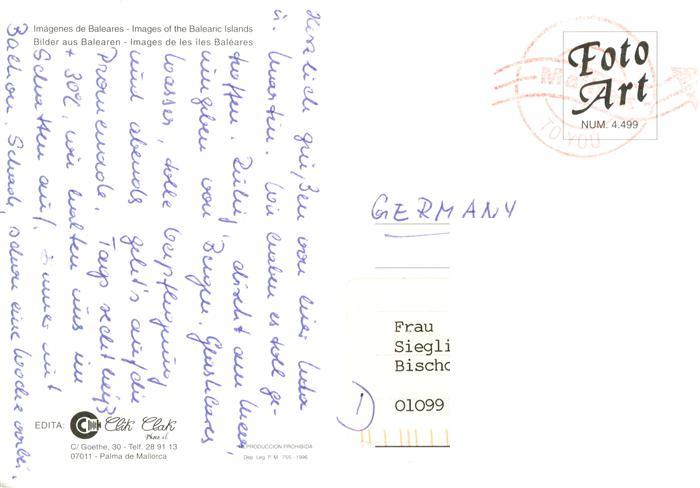 Imágenes de Baleares - Images of the Balearic Islands
Bilder aus Balearen - Images de les îles Baléares
Herzlich grüßen von hier Jutta
u. Martin. Wir haben es toll ge-
troffen. Ruhig, direkt am Meer,
umgeben von Bergen. Glasklares
Wasser, tolle Verpflegung
und abends geht's auf die
Promenade. Tags recht heiß
+ 30°, wir halten uns im
Schatten auf. Zimmer mit
Balkon. Schade, schon eine Woche vorbei.
EDITA:
Clik Clak
C/ Goethe, 30 - Telf. 28 91 13
07011 - Palma de Mallorca
REPRODUCCION PROHIBIDA
Dep. Leg. P M 755 - 1996
Foto
Art
NUM. 4.499
TO YOU
GERMANY
Frau
Siegli
Bischo
01099
1)